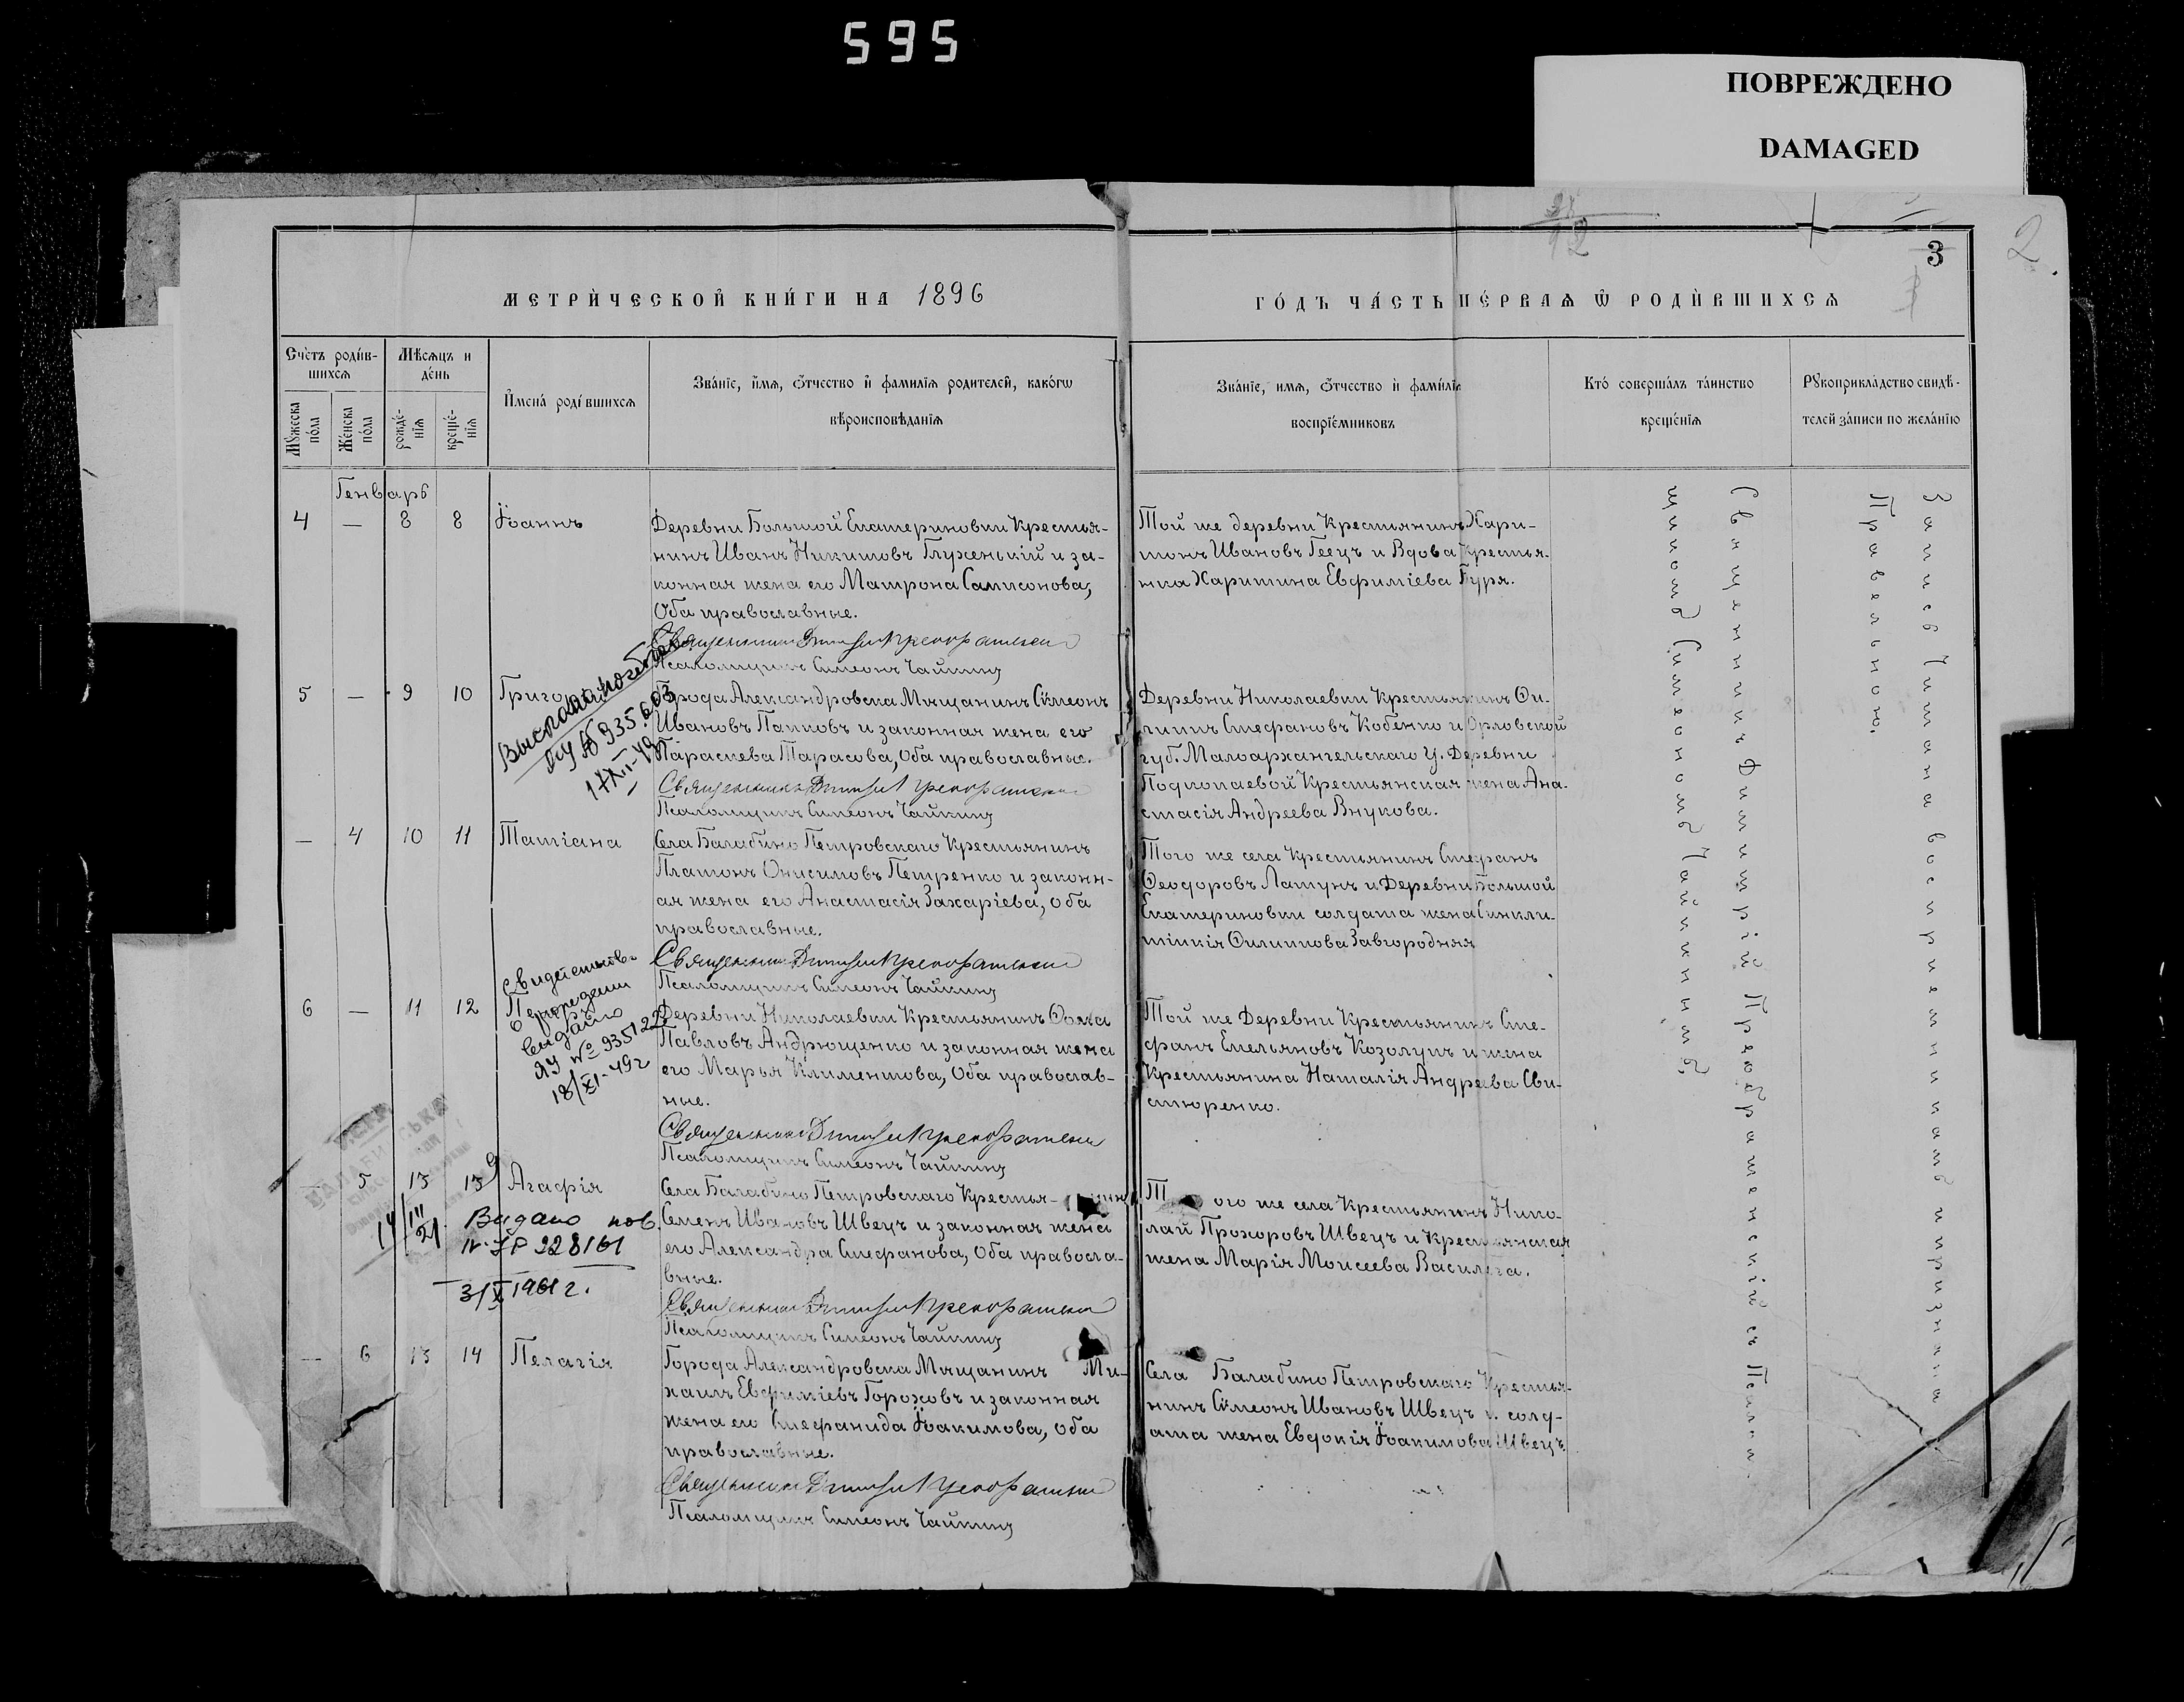 595
ПОВРЕЖДЕНО
DAMAGED
2
3
МЕТРИ́ЧЕСКОЙ КНИ́ГИ НА 1896
ГО́ДЪ ЧА́СТЬ ПЕ́РВАѦ Ѡ РОДИ́ВШИХСѦ
Сче́тъ роди́в-
шихсѧ
Мѣ́сѧцъ и
де́нь
Мꙋ́жеска
по́ла
Же́нска
по́ла
рожде́-
нїѧ
креще́-
нїѧ
И҆мена̀ роди́вшихсѧ
Зва́нїе, и҆́мѧ, ѻ҆́тчество и҆ фами́лїѧ роди́телей, како́гѡ
вѣроисповѣ́данїѧ
Зва́нїе, и҆́мѧ, ѻ҆́тчество и҆ фами́лїѧ
воспрїе́мниковъ
Кто̀ соверша́лъ та́инство
креще́нїѧ
Рꙋкоприкла́дство свидѣ́-
телей за́писи по жела́нїю
Генварь
4 — 8 8 Іоаннъ
Деревни Большой Екатериновки Крестья-
нинъ Иванъ Никитовъ Глуженькій и за-
конная жена его Матрона Самсонова,
Оба православные.
Священникъ Димитрій Преображенскій
Псаломщикъ Симеонъ Чайкинъ
Той же деревни Крестьянинъ Хари-
тонъ Ивановъ Геецъ и Вдова Крестья-
нка Харитина Евфиміева Буря.
5 — 9 10
ЯУ № 935603
17/XII-49
Города Александровска Мѣщанинъ Сѵмеонъ
Ивановъ Папковъ и законная жена его
Параскева Тарасова, Оба православные.
Священникъ Димитрій Преображенскій
Псаломщикъ Симеонъ Чайкинъ
Деревни Николаевки Крестьянинъ Ѳи-
липпъ Стефановъ Кобенко и Орловской
губ. Малоархангельскаго У. Деревни
Подкопаевой Крестьянская жена Ана-
стасія Андреева Внукова.
— 4 10 11 Татіана
Села Балабино Петровскаго Крестьянинъ
Платонъ Онисимовъ Петренко и законн-
ая жена его Анастасія Захаріева, Оба
православные.
Священникъ Димитрій Преображенскій
Псаломщикъ Симеонъ Чайкинъ
Того же села Крестьянинъ Стефанъ
Ѳеодоровъ Латунъ и Деревни Большой
Екатериновки солдата жена Синкли-
тикія Филиппова Завгородняя
6 — 11 12 Петръ
Свидетельств.
о рождении
выдано
ЯУ № 935122
18/XI-49г
Деревни Николаевки Крестьянинъ Ѳома
Павловъ Андрющенко и законная жена
его Марья Климентова, Оба православ-
ные.
Священникъ Димитрій Преображенскій
Псаломщикъ Симеонъ Чайкинъ
Той же Деревни Крестьянинъ Сте-
фанъ Емельяновъ Козолупъ и жена
Крестьянина Наталія Андреева Сви-
сторенко.
— 5 13 13 Агафія
14/III 21
Видано пов.
ІР 228161
3/X 1961 г.
Села Балабино Петровскаго Крестья-нинъ
Семенъ Ивановъ Швецъ и законная жена
его Александра Стефанова, Оба правосла-
вные.
Священникъ Димитрій Преображенскій
Псаломщикъ Симеонъ Чайкинъ
Того же села Крестьянинъ Нико-
лай Прохоровъ Швецъ и Крестьянская
жена Марія Моисеева Василега.
— 6 13 14 Пелагія
Города Александровска Мѣщанинъ Ми-
хаилъ Евфиміевъ Гороховъ и законная
жена его Стефанида Іоакимова, Оба
православные.
Священникъ Димитрій Преображенскій
Псаломщикъ Симеонъ Чайкинъ
Села Балабино Петровскаго Крестья-
нинъ Сѵмеонъ Ивановъ Швецъ и солд-
ата жена Евдокія Іоакимова Швецъ.
Священникъ Димитрій Преображенскій съ Псалом-
щикомъ Симеономъ Чайкинымъ.
Запись читана воспріемникамъ и признана
Правильною.